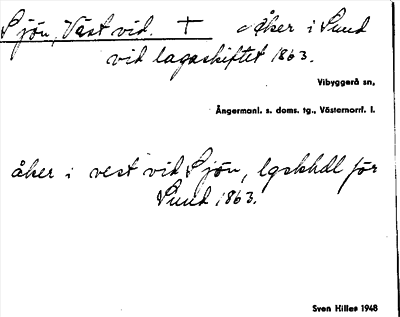 Sjön, Väst vid. † åker i Sund
vid lagaskiftet 1863.
Vibyggerå sn,
Ångermanl. s. doms. tg., Västernorrl. l.
åker i vest vid Sjön, lgskhdl för
Sund 1863.
Sven Hilles 1948